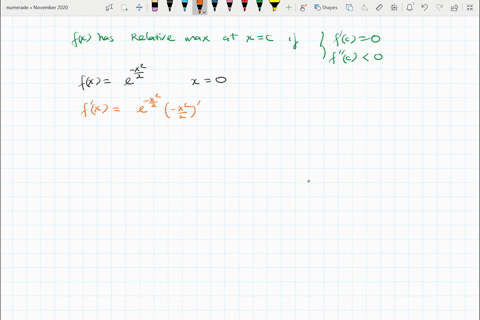 numerade » November 2020
Shapes
f(x) has Relative max at x=c if { f'(c)=0
f''(c)<0
f(x) = e^{-x²/2}    x=0
f'(x) = e^{-x²/2} (-x²/2)'